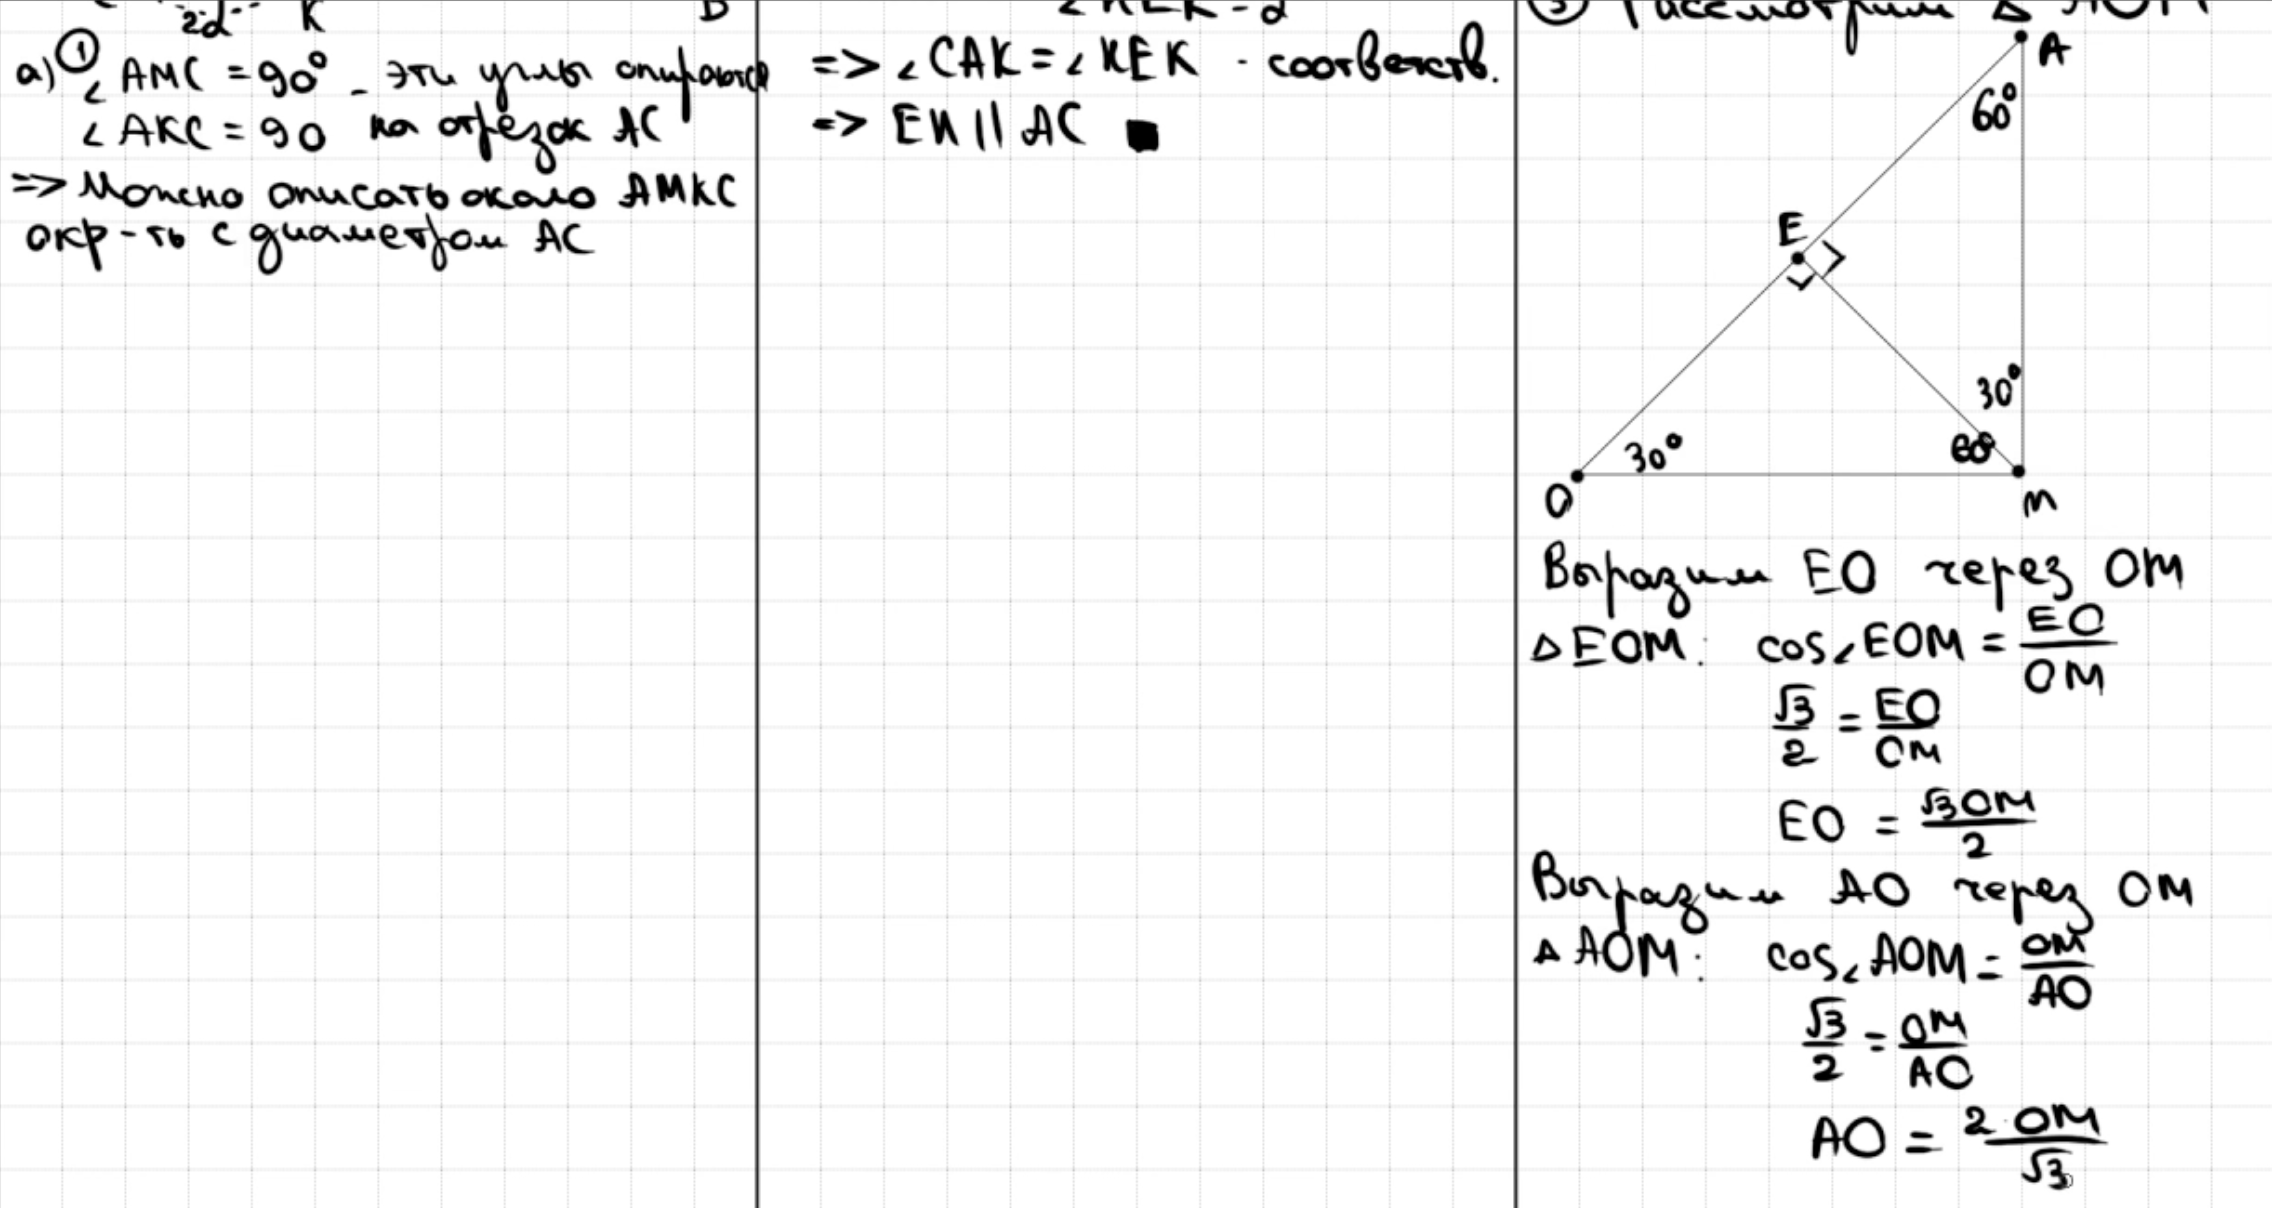 2α K
B
а) ① ∠AMC = 90° - эти углы опираются
∠AKC = 90 на отрезок AC
=> Можно описать около AMKC
окр-ть с диаметром AC
=> ∠CAK = ∠NEK - соответств.
=> EN || AC ■
Рассмотрим △ AOM
A
60°
E
30°
30°
60°
O
M
Выразим EO через OM
△EOM: cos∠EOM = EO/OM
√3/2 = EO/OM
EO = √3OM/2
Выразим AO через OM
△AOM: cos∠AOM = OM/AO
√3/2 = OM/AO
AO = 2·OM/√3